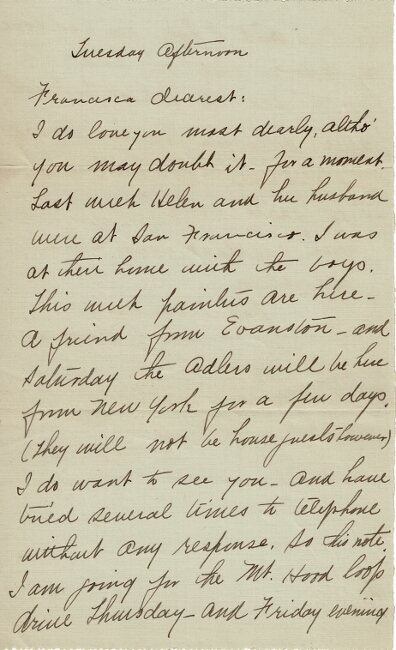 Tuesday Afternoon
Francisca dearest:
I do love you most dearly, altho'
you may doubt it - for a moment.
Last week Helen and her husband
were at San Francisco. I was
at their home with the boys.
This week painters are here -
A friend from Evanston - and
Saturday the Adlers will be here
from New York for a few days.
(They will not be house guests however)
I do want to see you - and have
tried several times to telephone
without any response. So this note.
I am going for the Mt. Hood loop
drive Thursday - and Friday evening